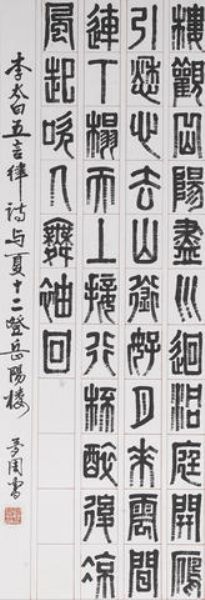 樓觀岳陽盡川迥洞庭開鴈
引愁心去山銜好月來雲間
連下榻天上接行杯醉後涼
風起吹人舞袖回
李太白五言律詩与夏十二登岳陽樓 周書